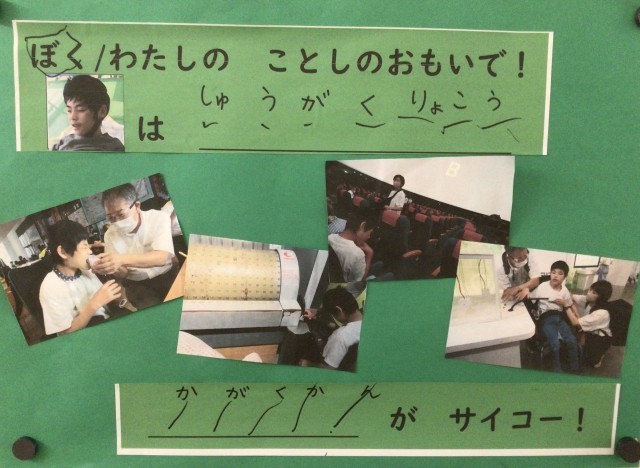 ぼく/わたしの ことしのおもいで!
は しゅうがくりょこう
かがくかん が サイコー!